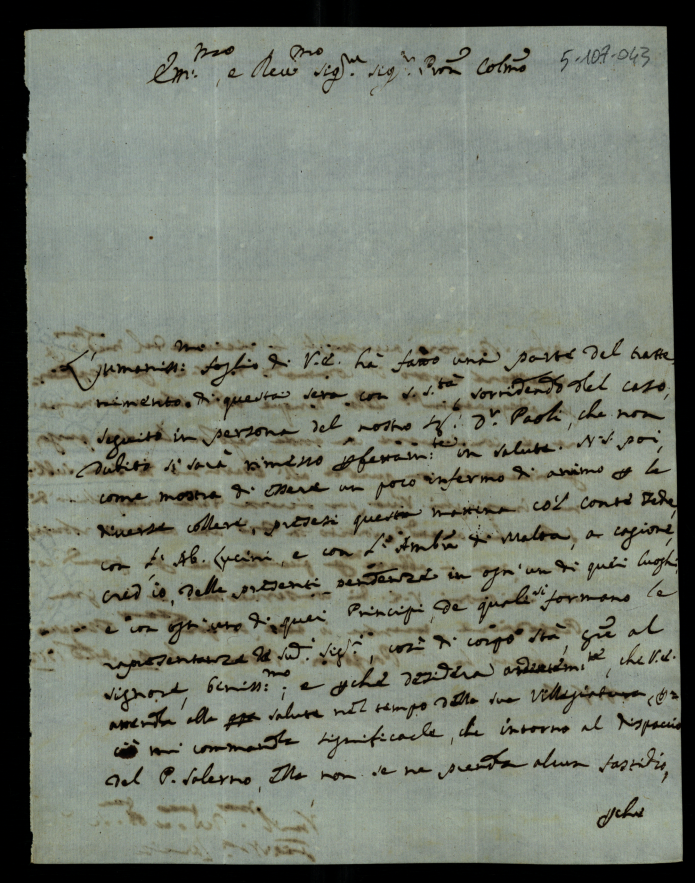 Em.mo e Rev.mo Sig.re Sig.r Pron Colmo
5-107-043
L'umaniss.mo foglio di V.E. hà fatto una parte del tratte
nimento di questa sera con S. S.tà, sorridendo del caso,
seguito in persona del nostro Sig.r D.r Paoli, che non
subito si sarà rimesso pfettam.te in salute. N. S. poi,
come mostra di essere un poco infermo di animo p le
diverse collere, presesi questa mattina col Conte
con l'Ab. Lucini, e con l'Amb.r di Malta, a cagione,
cred'io, delle presenti pendenze in ogn'un di quei luoghi,
e con ogn'uno di quei Principi, de quali si formano le
rapresentanze de sud.i Sig.ri, così di corpo stà, gre al
Signore, beniss.mo; e pche desidera ardentem.te, che V.E.
attenda alla salute nel tempo della sua Villegiatura, p
ciò mi commanda significarle, che intorno al dispaccio
del P. Salerno, Ella non se ne prenda alcun fastidio,
pche